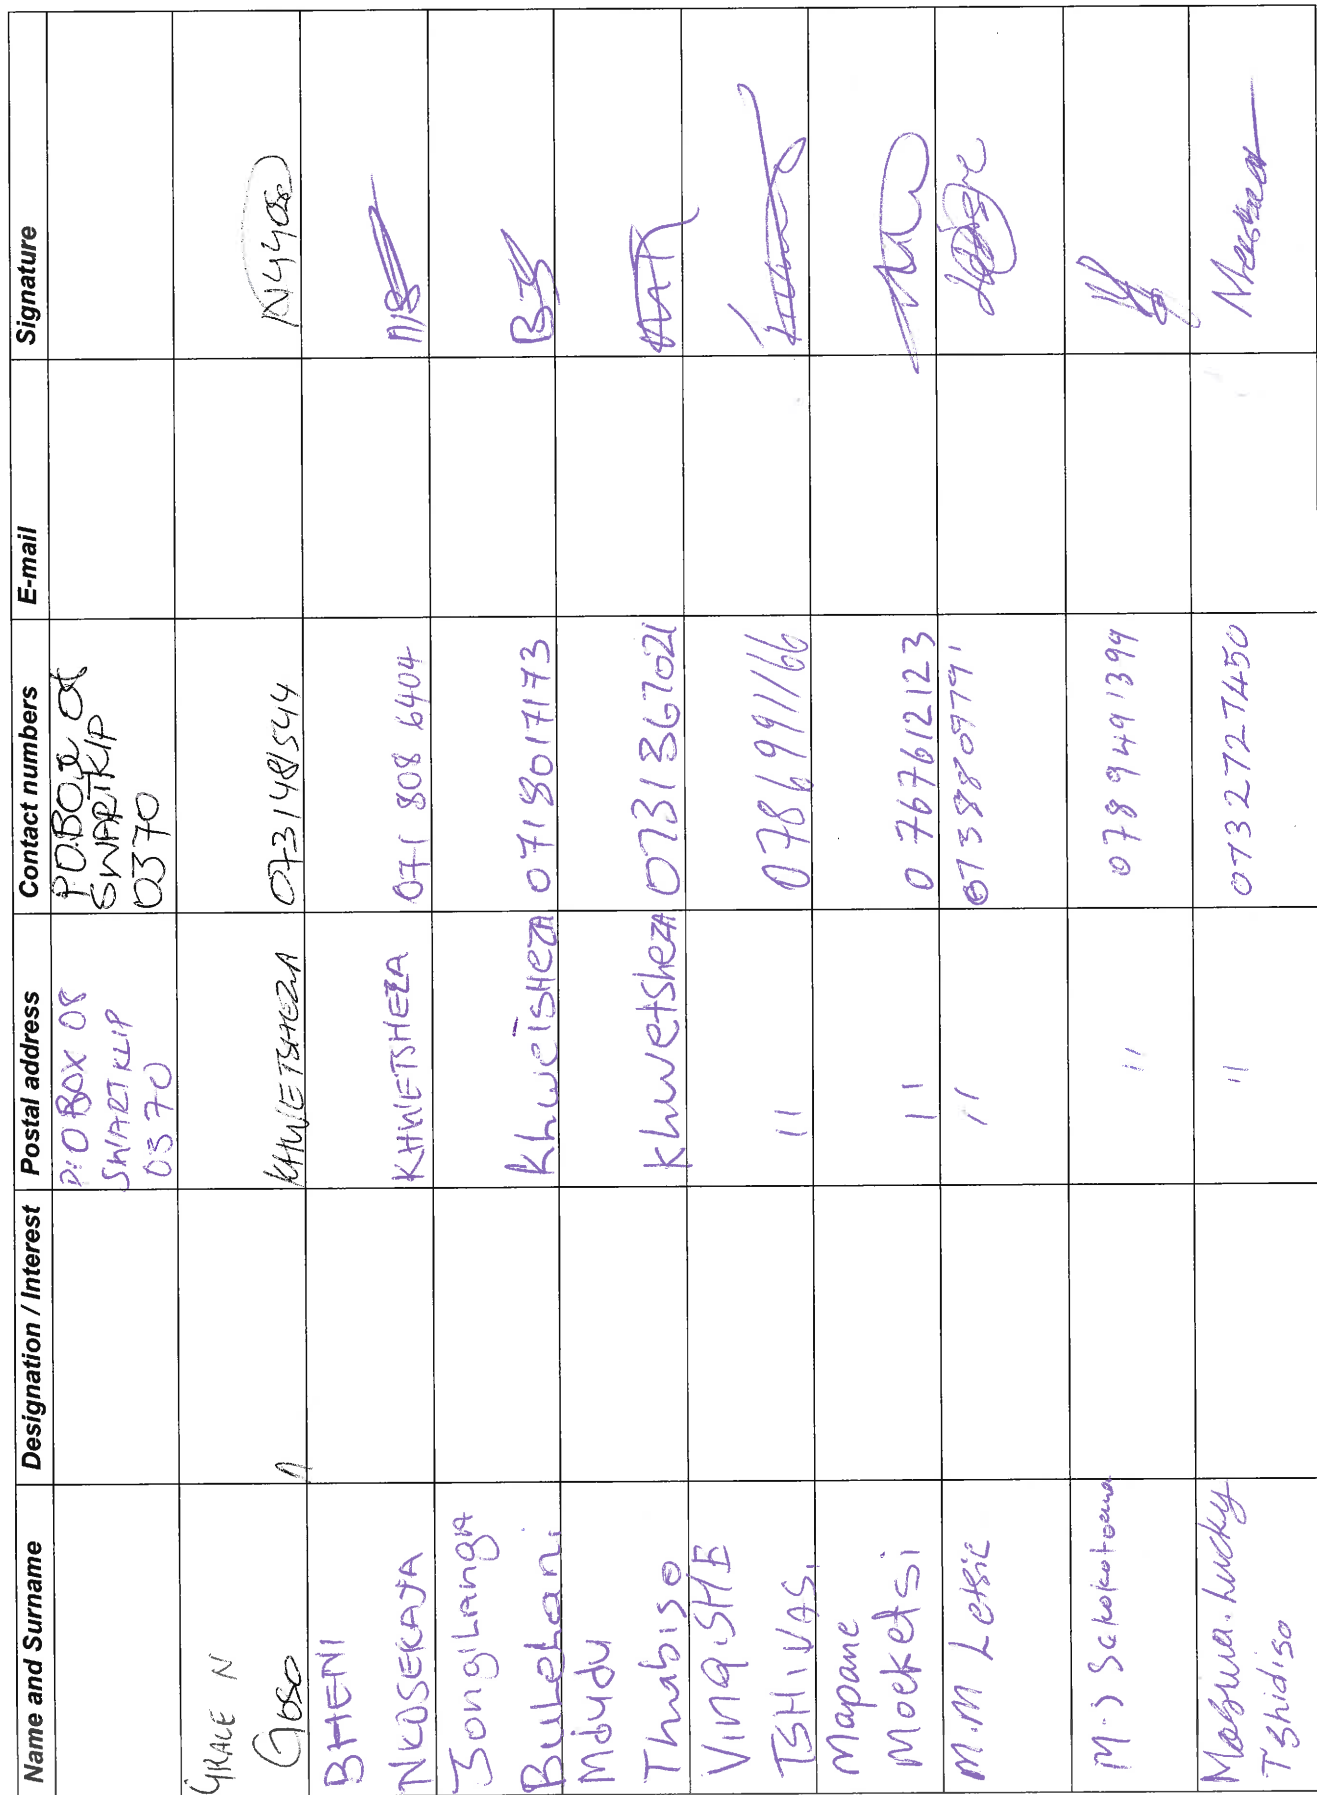 Name and Surname Designation / Interest Postal address Contact numbers E-mail Signature
P.O BOX 08 P.O.BOX 08
SWARTKLIP SWARTKLIP
0370 0370
GRACE N
Goso KHWETSHEZA 0731481544
BHENI
NKOSEKAJA KHWETSHEZA 071 808 6404 NB
JongiLanga
Bulelani KhweTsHEZA 0718017173 BJ
Mdudu
Thabiso KhwetsheZA 0731367021
VingiSHE
TSHIVASI " 0786991166
Mapane
Moeketsi " 0767612123
M.M Letsie " 0738809791
M.J Sekokotoana " 0789491399
Lucky
Tshidiso " 0732727450